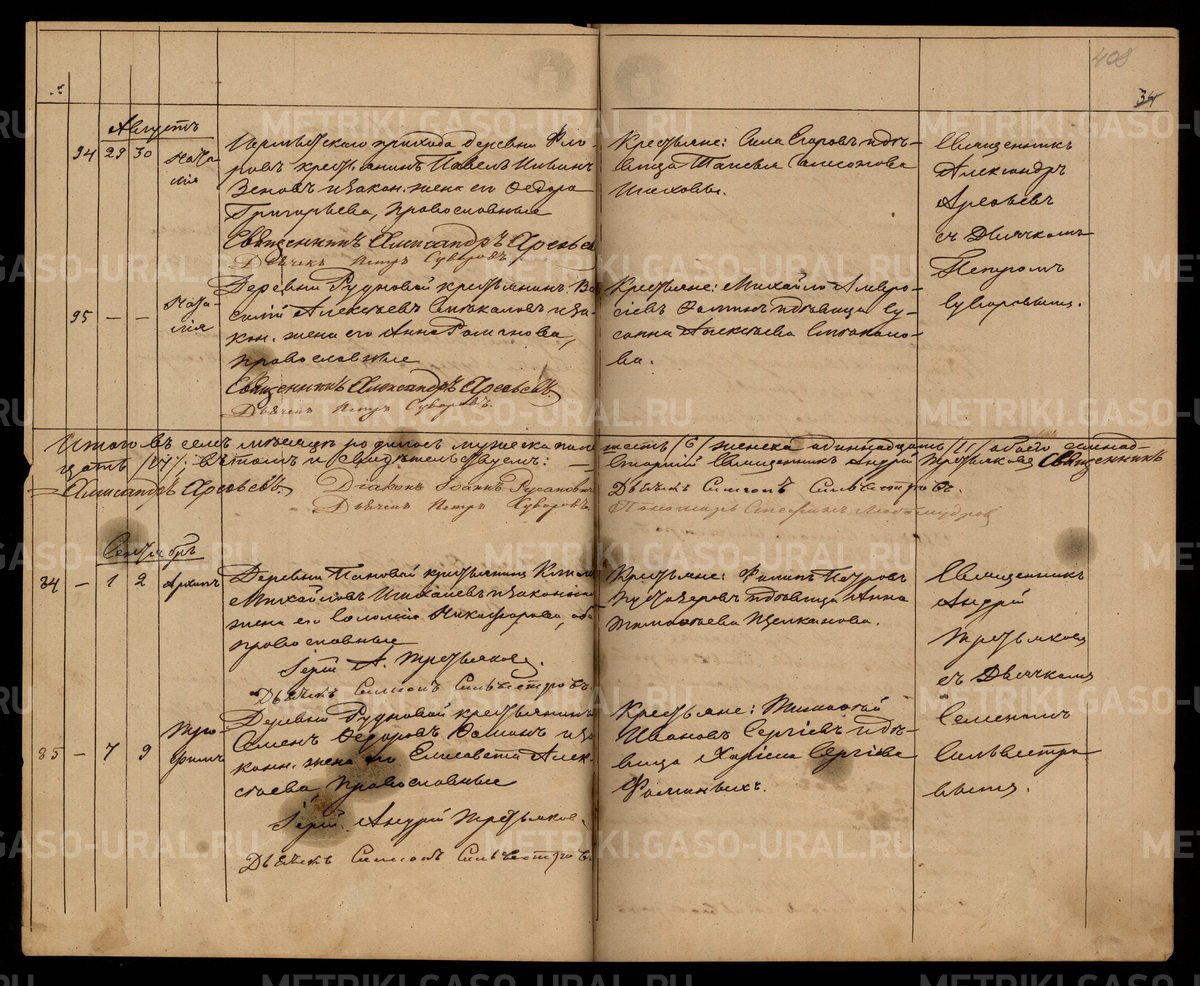 408
34
Августъ
94 29 30 Наталія
прихода деревни Фло-
ровъ крестьянинъ Павелъ Ильинъ
Зеновъ и закон. жена его Ѳедора
Григорьева, православные
Священникъ Александръ Арефьевъ
Дьячекъ Петръ Суворовъ
Крестьяне: Сила Егоровъ и дѣ-
вица Таисья
Священникъ
Александръ
Арефьевъ
съ Дьячкомъ
Петромъ
Суворовымъ.
95 — — Наталія
Деревни Рудновой крестьянинъ Ва-
силій Алексѣевъ Стукаловъ и за-
кон. жена его Анна Романова,
православные
Священникъ Александръ Арефьевъ
Дьячекъ Петръ Суворовъ
Крестьяне: Михайло Амвро-
сіевъ Фоминъ и дѣвица Су-
санна Алексѣева Стукало-
ва.
Итого въ семъ мѣсяцѣ родилось мужеска пола шесть /6/ женска одинадцать /11/ обоего семнад-
цать /17/. въ томъ и свидѣтельствуемъ: — Священникъ Андрей Третьяковъ Священникъ
Александръ Арефьевъ Діаконъ Іоаннъ Дьячекъ Симеонъ Сильвестровъ.
Дьячекъ Петръ Суворовъ. Пономарь Стефанъ Любомудровъ
Сентябрь
84 — 1 2 Архипъ
Деревни Пановой крестьянинъ
Михайловъ и законная
жена его Соломія Никифорова, оба
православные
Іерей А. Третьяковъ.
Дьячекъ Симеонъ Сильвестровъ
Крестьяне: Филипъ Петровъ
Пустозеровъ и дѣвица Анна
Тимофѣева Щелканова.
Священникъ
Андрей
Третьяковъ
съ Дьячкомъ
Семеномъ
Сильвестро
вымъ.
85 — 7 9 Трофимъ
Деревни Рудновой крестьянинъ
Семенъ Ѳедоровъ Фоминъ и за
конн. жена его Елисавета Алек-
сѣева, православные
Іерей Андрей Третьяковъ.
Дьячекъ Симеонъ Сильвестровъ
Крестьяне: Тимофей
Ивановъ Сергіевъ и дѣ-
вица Харіеса Сергіева
Фоминыхъ.
METRIKI.GASO-URAL.RU